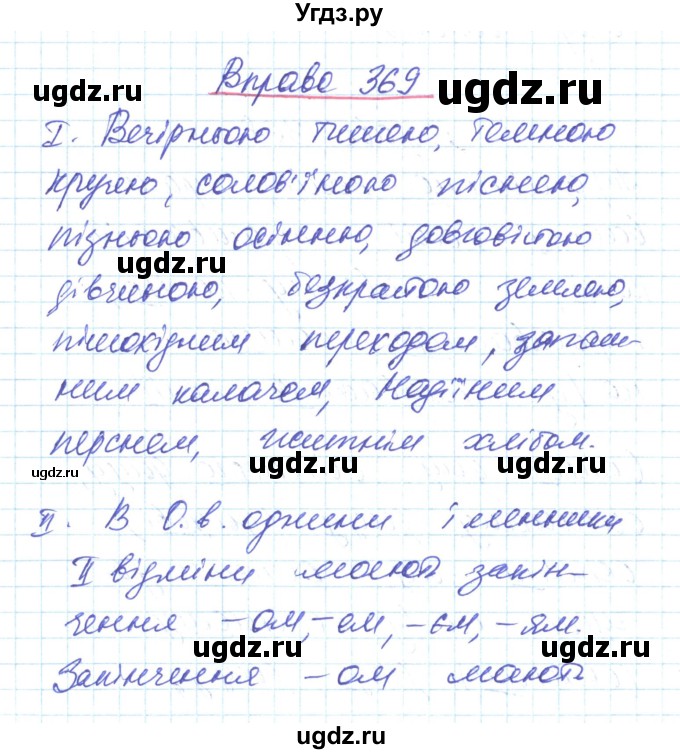 Угдз.ру
Вправа 369
ugdz.ru
I. Вечірньою тишею, темною
ugdz.ru
кручею, солов'їною піснею,
пізньою осінню, довговістою
ugdz.ru
дівчиною, безкрайою землею,
ugdz.ru
пішохідним переходом, запаш-
ним калачем, надійним
перснем, житнім хлібом.
ugdz.ru ugdz.ru ugdz.ru
II. В О.в. однини іменники
ugdz.ru
II відміни мають закін-
чення -ом, -ем, -єм, -ям.
ugdz.ru ugdz.ru
Закінчення -ом мають